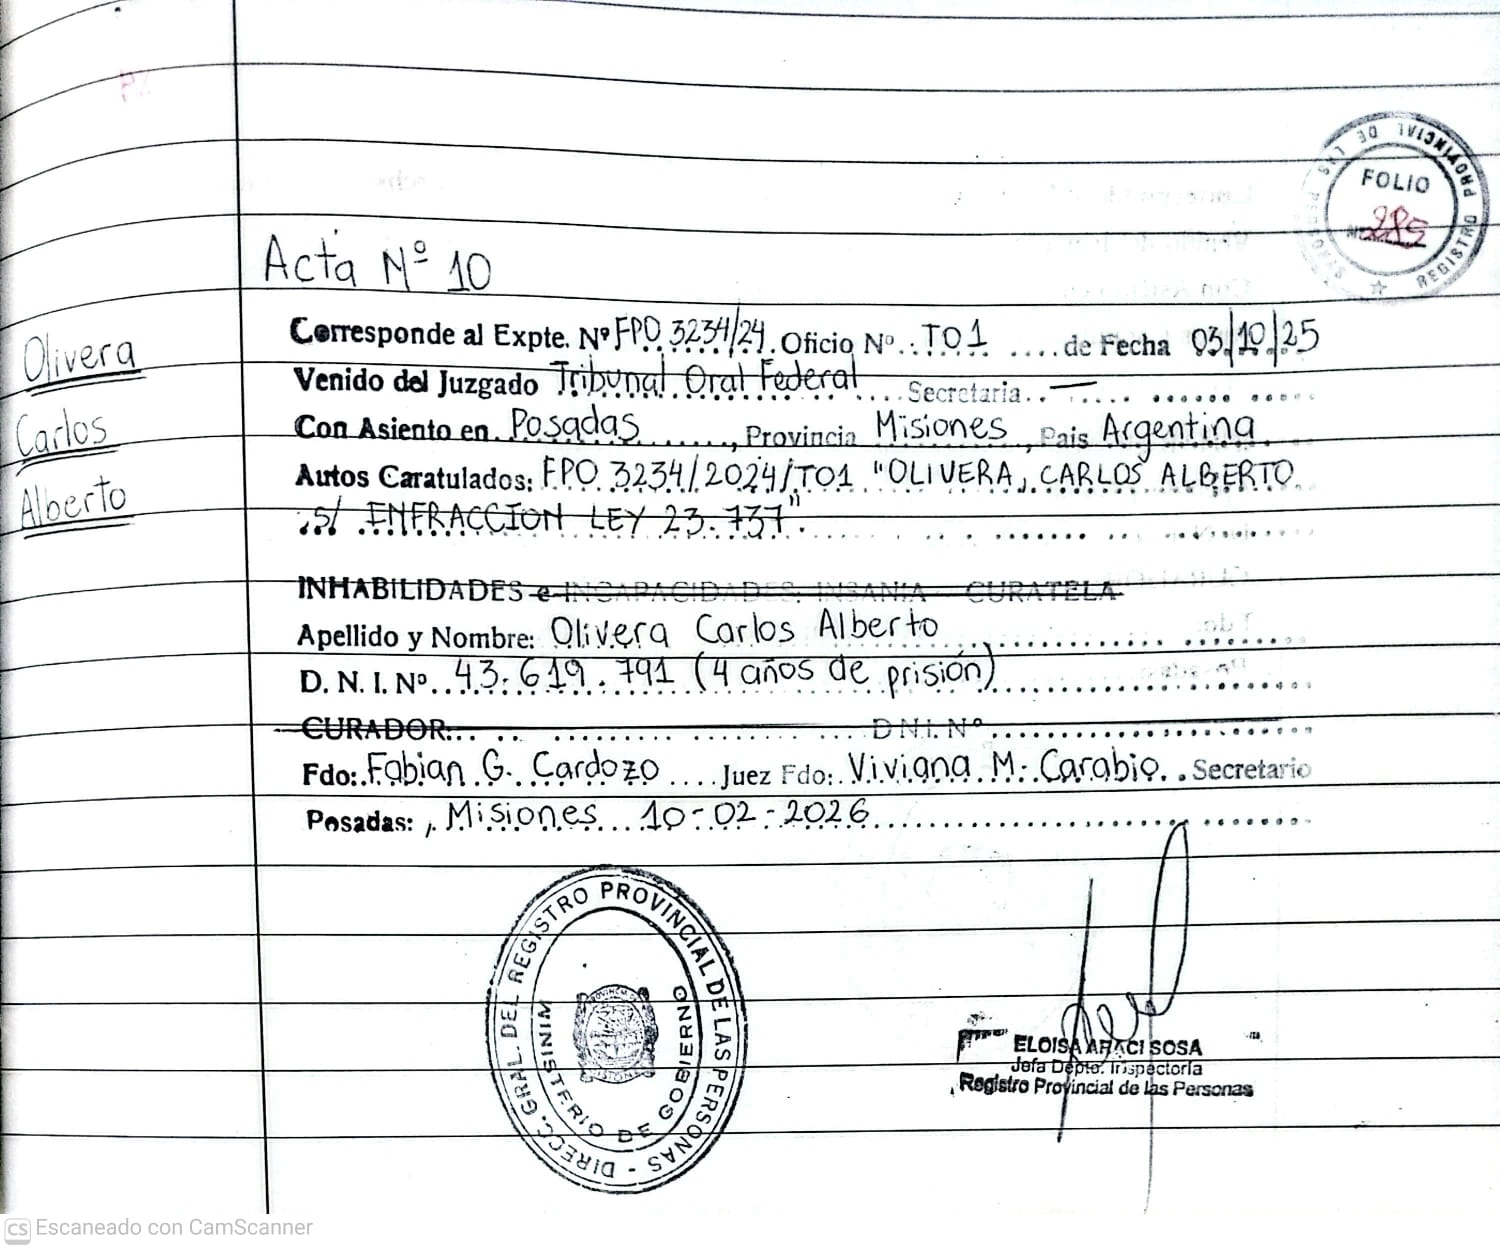 REGISTRO PROVINCIAL DE LAS PERSONAS
FOLIO
Nº 285
Acta Nº 10
Olivera
Carlos
Alberto
Corresponde al Expte. Nº FPO 3234/24 Oficio Nº. TO1 .... de Fecha 03/10/25
Venido del Juzgado Tribunal Oral Federal Secretaria.. —
Con Asiento en Posadas, Provincia Misiones, Pais Argentina
Autos Caratulados: FPO 3234/2024/TO1 "OLIVERA, CARLOS ALBERTO
S/ INFRACCION LEY 23.737".
INHABILIDADES e INCAPACIDADES: INSANIA - CURATELA
Apellido y Nombre: Olivera Carlos Alberto
D. N. I. Nº 43.619.791 (4 años de prisión)
CURADOR: D.N.I. Nº
Fdo: Fabian G. Cardozo .... Juez Fdo: Viviana M. Carabio. Secretario
Posadas:, Misiones 10-02-2026
DIRECC. GRAL. DEL REGISTRO PROVINCIAL DE LAS PERSONAS -
MINISTERIO DE GOBIERNO
MISIONES
ELOISA ARACI SOSA
Jefa Depto. Inspectoria
Registro Provincial de las Personas
CS Escaneado con CamScanner